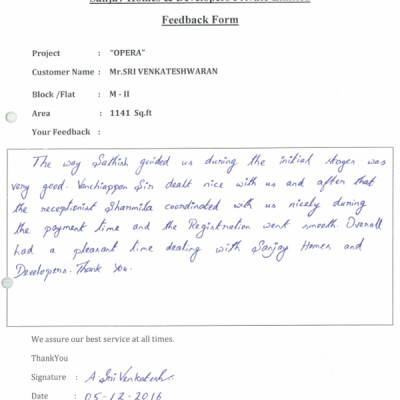 Feedback Form
Project : "OPERA"
Customer Name : Mr.SRI VENKATESHWARAN
Block /Flat : M - II
Area : 1141 Sq.ft
Your Feedback :
The way Sathish guided us during the initial stages was
very good. Venchiappan Sir dealt nice with us and after that
the receptionist Sharmila coordinated with us nicely during
the payment time and the Registration went smooth. Overall
had a pleasant time dealing with Sanjay Homes and
Developers. Thank You.
We assure our best service at all times.
ThankYou
Signature : A. Sri Venkatesh
Date : 05-12-2016